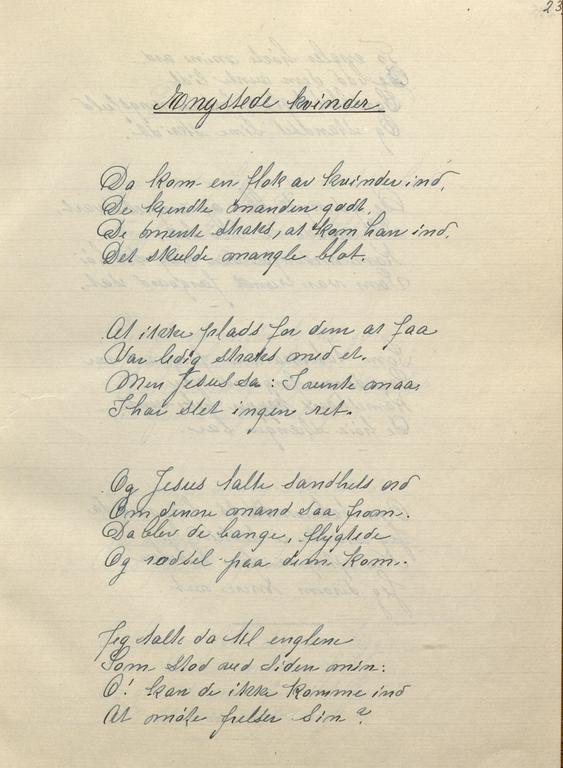 23.
Ængstede kvinder.
Da kom en flok av kvinder ind,
De kjendte manden godt.
De mente straks, at kom han ind,
Det skulde mangle blot.
At ikke plads for dem at faa
Var ledig straks med et.
Men Jesus sa: I vente maa,
I har slet ingen ret.
Og Jesus talte sandhets ord
Om denne mand saa from.
Da blev de bange, flygtede
Og rædsel paa dem kom.
Jeg talte da til englene
Som stod ved siden min:
O! kan de ikke komme ind
At møte frelser sin?